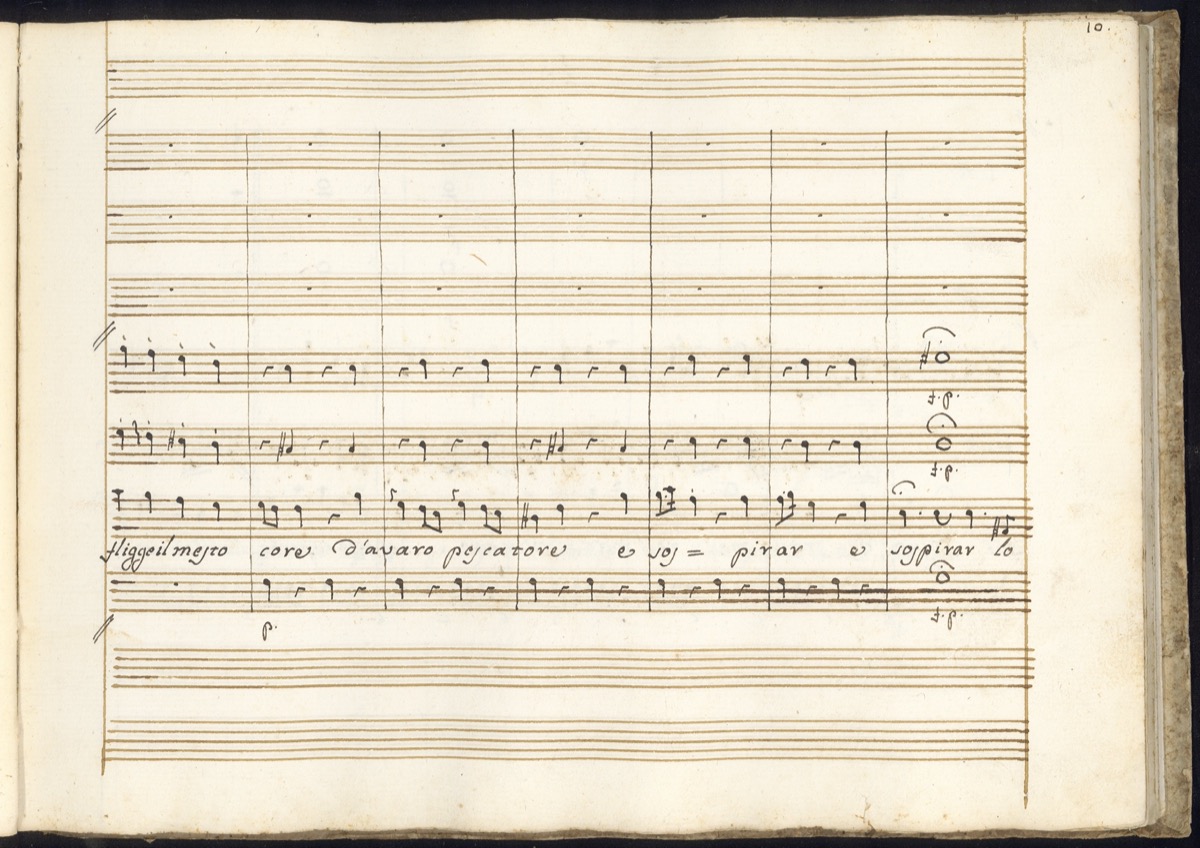 10.
f.p.
f.p.
fligge il mesto core d'avaro pescatore e sos = pirar e sospirar lo
f.p.
p.